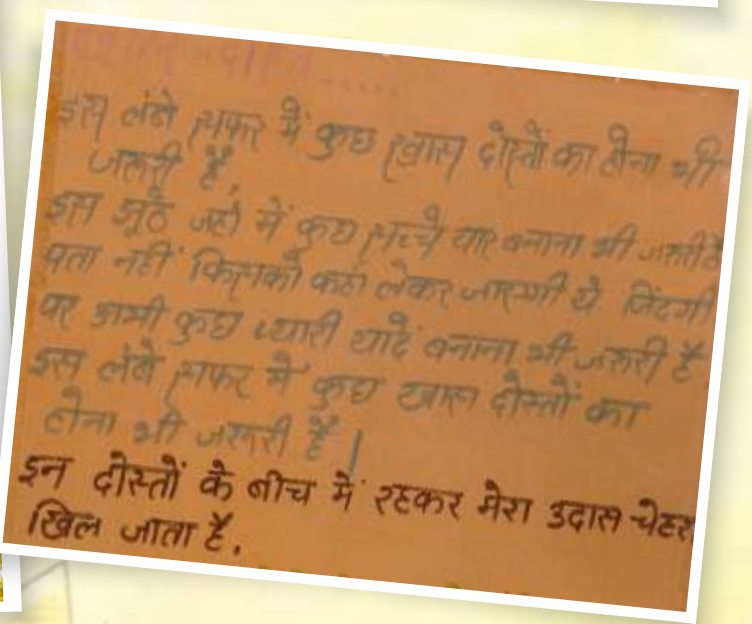 इस लंबे सफर में कुछ ख़ास दोस्तों का होना भी
जरुरी है,
इस झूठे जहाँ में कुछ सच्चे यार बनाना भी जरुरी है
पता नहीं किसको कहां लेकर जाएगी ये जिंदगी
पर अभी कुछ प्यारी यादें बनाना भी जरुरी है,
इस लंबे सफर में कुछ खास दोस्तों का
होना भी जरुरी है |
इन दोस्तों के बीच में रहकर मेरा उदास चेहरा
खिल जाता है.